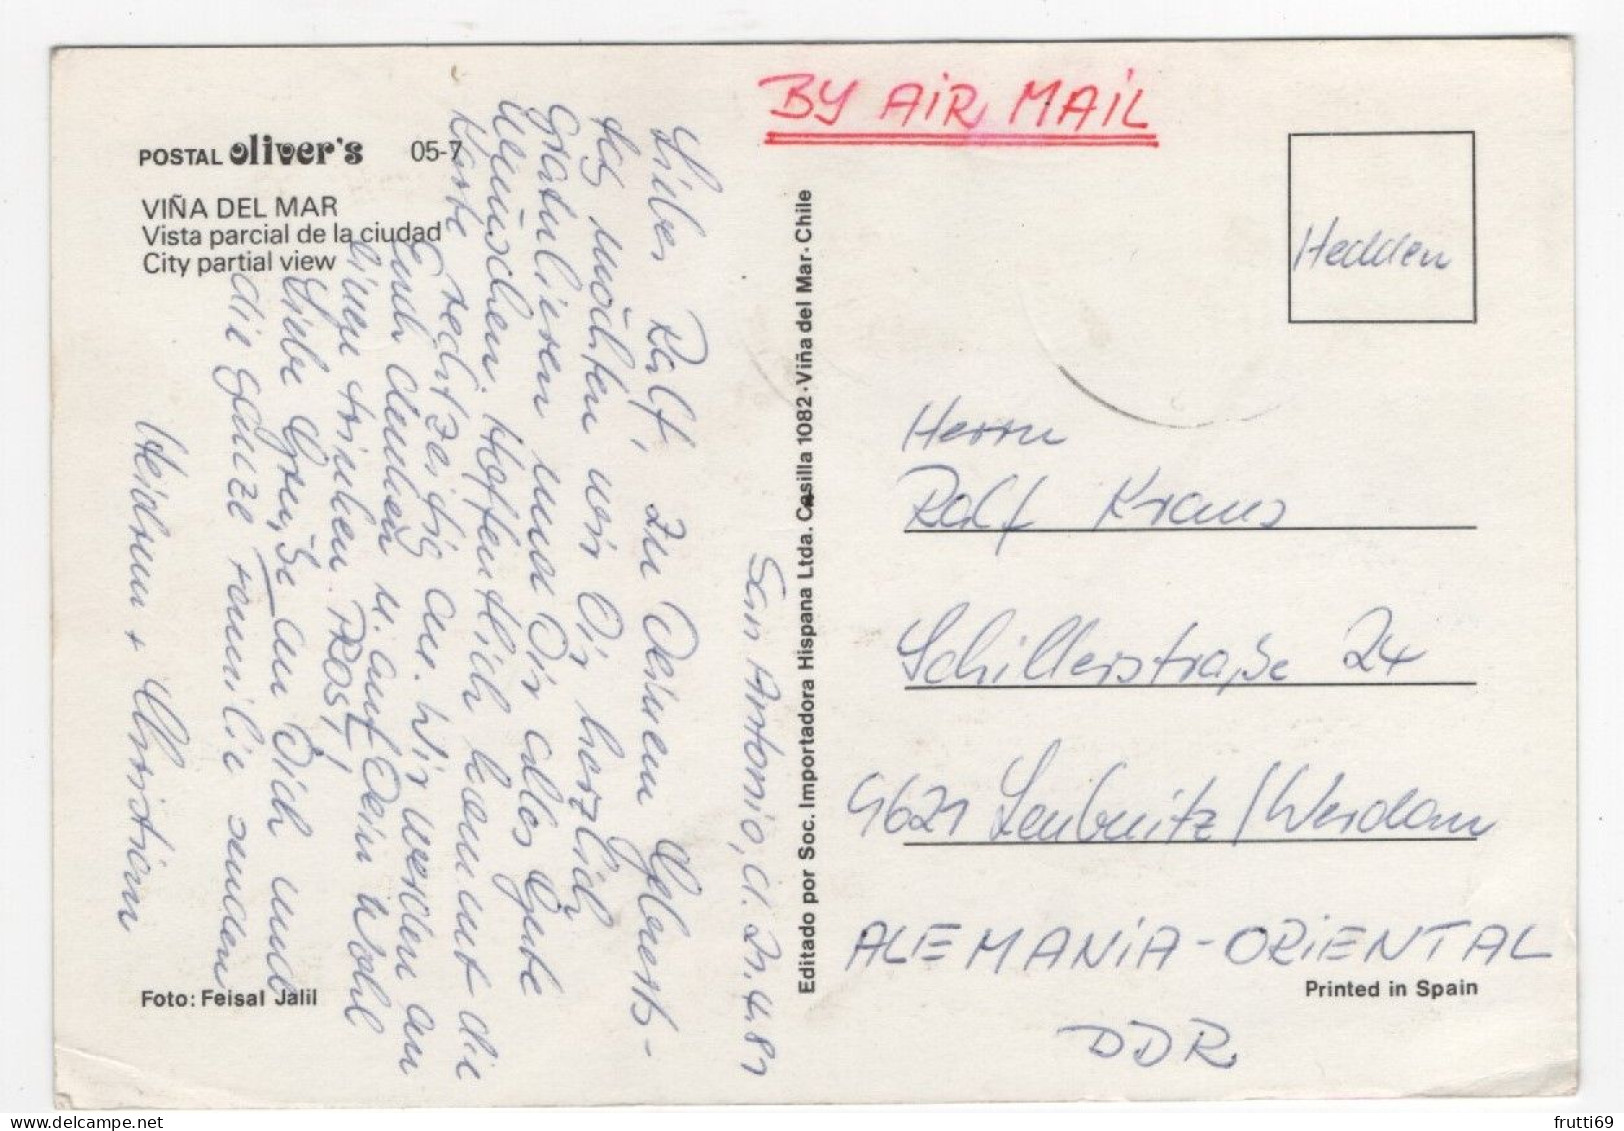 BY AIR MAIL
POSTAL oliver's 05-7
VIÑA DEL MAR
Vista parcial de la ciudad
City partial view
San Antonio, d. 21.4.81
Lieber Ralf, zu Deinem Geburts-
tag möchten wir Dir herzlich
gratulieren und Dir alles Gute
wünschen. Hoffentlich kommt die
Karte rechtzeitig an. Wir werden an
Euch denken u. auf Dein Wohl
einen trinken. PROST!
Liebe Grüße an Dich und
die ganze Familie senden
Heidrun + Christian
Foto: Feisal Jalil
Editado por Soc. Importadora Hispana Ltda. Casilla 1082 · Viña del Mar · Chile
Herrn
Ralf Kraus
Schillerstraße 24
9621 Leubnitz / Werdau
ALEMANIA - ORIENTAL
Printed in Spain
DDR
frutti69